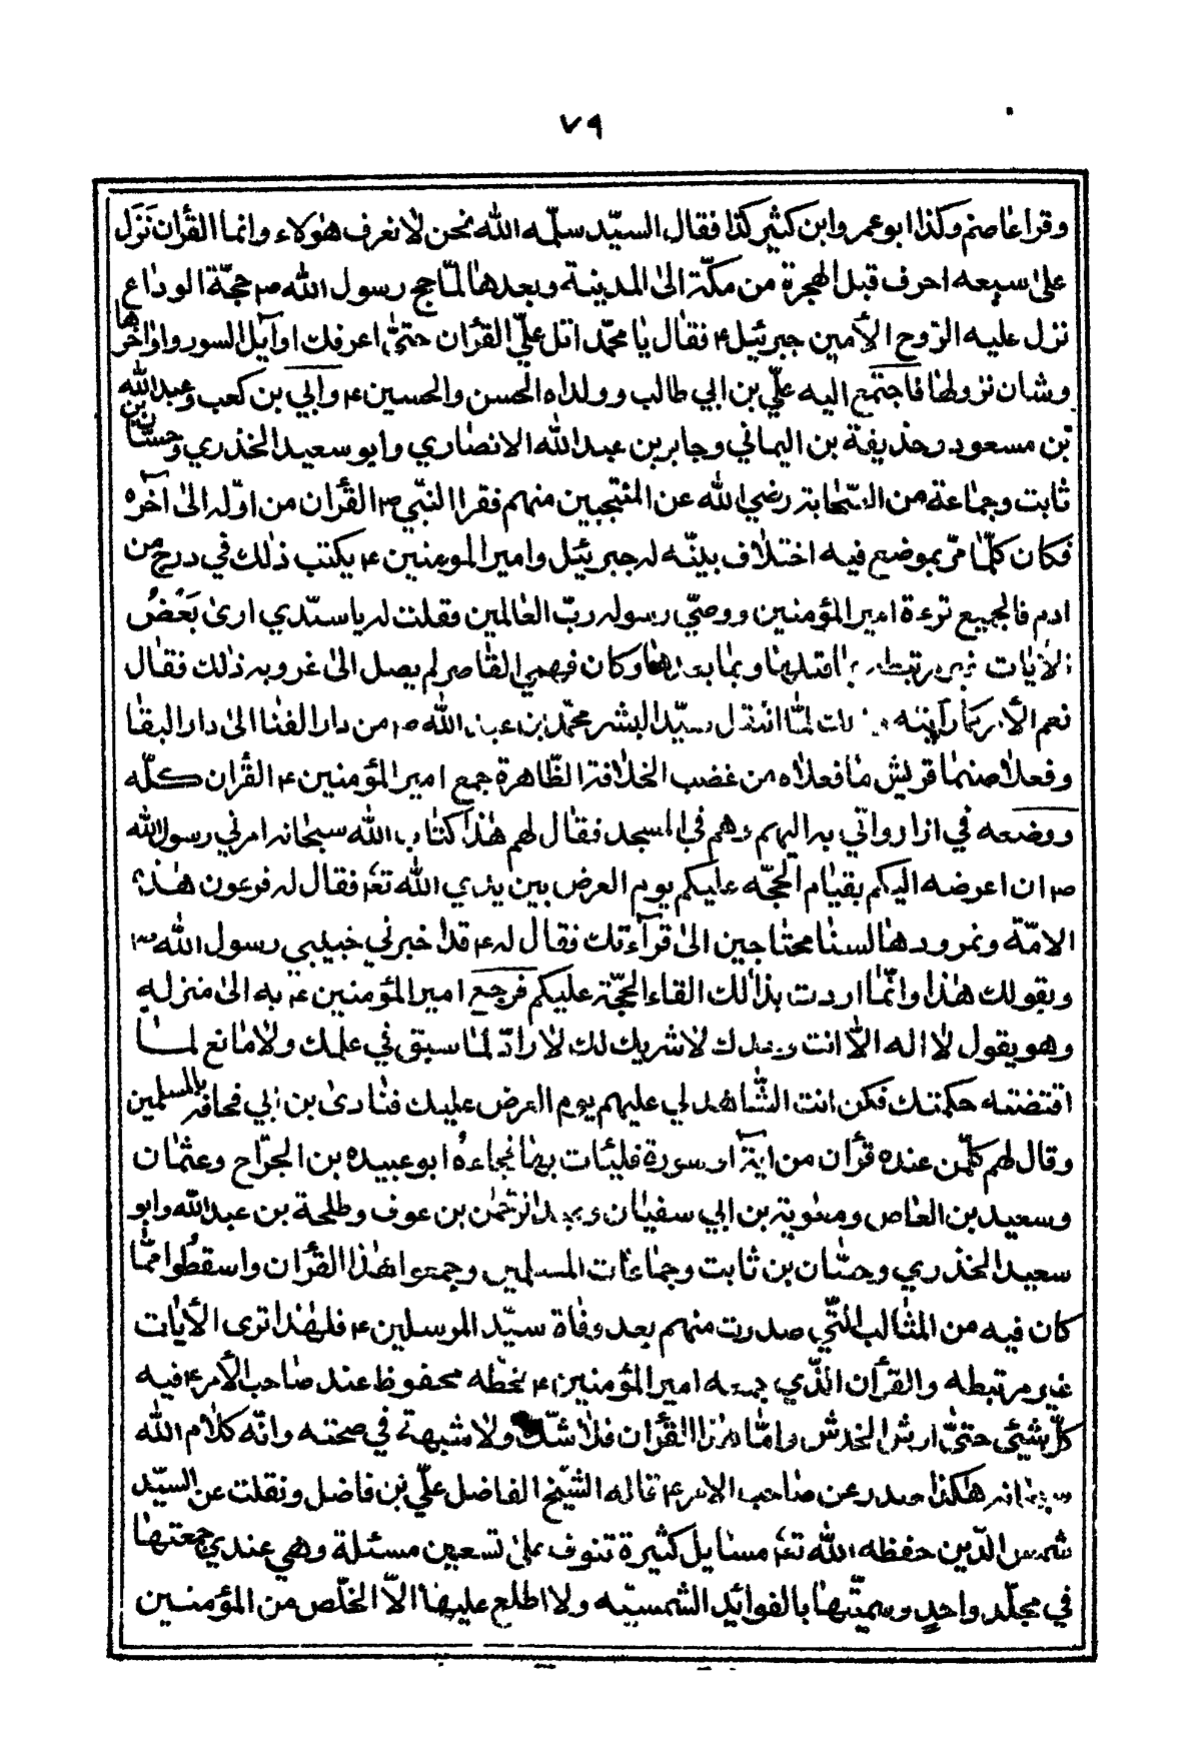 ٧٩
وقرا عاصم وكذا ابو عمر وابن كثير كذا فقال السيّد سلّمه الله نحن لا نعرف هؤلاء وانما القرأن نَزَل
على سبعه احرف قبل الهجرة من مكّة الى المدينة وبعدها لمّا حج رسول الله ص حجّة الوداع
نزل عليه الرّوح الأمين جبرئيل ع فقال يا محمّد اتل علىّ القرأن حتىّ اعرفك اوآيل السور واواخرها
وشان نزولها فاجتمع اليه علىّ بن ابي طالب وولداه الحسن والحسين ع وابي بن كعب وعبد الله
بن مسعود وحذيفة بن اليماني وجابر بن عبد الله الانصاري وابو سعيد الخذري وحسّان بن
ثابت وجماعة من الصّحابة رضي الله عن المنتجبين منهم فقرا النبّي ص القرأن من اوّله الى آخره
فكان كلّما مرّ بموضع فيه اختلاف بيّنه له جبرئيل وامير المومنين ع يكتب ذلك في درج من
ادم فالجميع قرءة امير المؤمنين ووصيّ رسول ربّ العالمين وقلت له يا سيّدي ارى بَعْضُ
الأيات غير مرتبطه بما قبلها وبما بعدها وكان فهمي القاصر لم يصل الى غروبه ذلك فقال
نعم الأمر كما رأيته لمّا انتقل سيّد البشر محمّد بن عبد الله ص من دار الفنا الى دار البقا
وفعلا صنما قريش ما فعلاه من غضب الخلافة الظّاهرة جمع امير المؤمنين ع القرأن كلّه
ووضعه في ازار واتي به اليهم وهم في المسجد فقال لهم هذا كتاب الله سبحانه امرني رسول الله
ص ان اعرضه اليكم بقيام الحجّه عليكم يوم العرض بين يدي الله تع فقال له فرعون هذه
الامّة ونمرودها لسنا محتاجين الى قرآءتك فقال له ع قد اخبرني حبيبي رسول الله ص
وبقولك هذا وانّما اردت بذلك القاء الحجّة عليكم فرجع امير المؤمنين ع به الى منزله
وهو يقول لا اله الاّ انت وحدك لا شريك لك لا رادّ لما سبق في علمك ولا مانع لمـا
اقتضته حكمتك فكن انت الشّاهد لي عليهم يوم العرض عليك فنادى بن ابي قحافه بالمسلمين
وقال لهم كلّمن عنده قرأن من اية او سورة فليئات بها فجاءهُ ابو عبيده بن الجرّاح وعثمان
وسعيد بن العاص ومعوية بن ابي سفيان وعبد الرّحمن بن عوف وطلحة بن عبد الله وابو
سعيد الخذري وحسّان بن ثابت وجماعات المسلمين وجمعوا هذا القرأن واسقطُوا ممّا
كان فيه من المثالب التّي صدرت منهم بعد وفاة سيّد المرسلين ع فلهذا ترى الأيات
غير مرتبطه والقرأن الذّي جمعه امير المؤمنين ع بخطّه محفوظ عند صاحب الأمر ع فيه
كلّ شيئي حتىّ ارش الخدش وامّا هذا القرأن فلا شك ولا شبهة في صحته وانّه كلام الله
سبحانه هكذا صدر عن صاحب الامر ع قاله الشّيخ الفاضل علىّ بن فاضل ونقلت عن السيّد
شمس الدّين حفظه الله تع مسايل كثيرة تنوف على تسعين مسئلة وهي عندي جمعتها
في مجلّد واحد وسميّتها بالفوائد الشمسيّه ولا اطلع عليها الاّ الخلّص من المؤمنـين